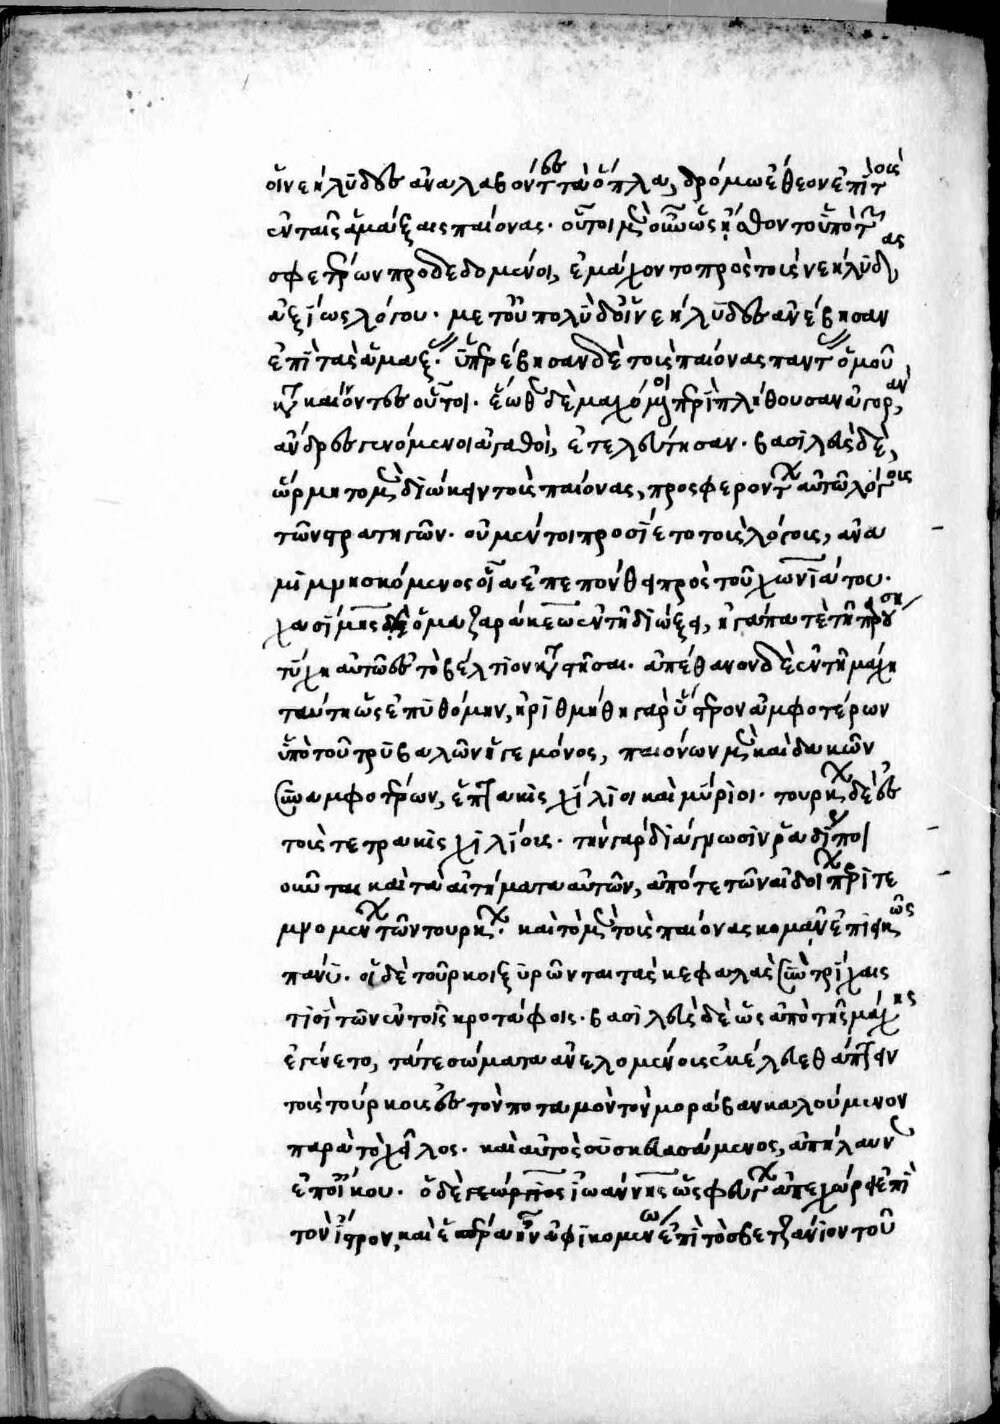 οἱ νεήλυδες ἀναλαβόντες τὰ ὅπλα, δρόμω ἔθεον ἐπὶ τοὺς
ἐν ταῖς ἁμάξαις παίονας. οὗτοι μὲν οὖν ὡς ᾔσθοντο ὑπὸ τῶν
σφετέρων προδεδομένοι, ἐμάχοντο πρὸς τοὺς νεήλυδας
ἀξίως λόγου. μετ' οὐ πολὺ δ' οἱ νεήλυδες ἀνέβησαν
ἐπὶ τὰς ἁμάξας. ὑπερέβησαν δὲ τοὺς παίονας πάντας ὁμοῦ
καὶ καίοντες οὗτοι. ἕωθεν δὲ μαχόμενοι περὶ πλήθουσαν ἀγορὰν,
ἄνδρες γενόμενοι ἀγαθοὶ, ἐτελεύτησαν. βασιλεὺς δὲ,
ὥρμητο μὲν διώκειν τοὺς παίονας, προσφέροντας αὐτῶ λόγους
τῶν στρατηγῶν. οὐ μέντοι προσίετο τοὺς λόγους, ἀνα
μιμνησκόμενος οἷα ἐπεπόνθει πρὸς τοῦ χωνιάτου.
χασίμης δὲ ὁ μαζαράκεω ἐν τῆ διώξει, ἠγάπα τε τῆ προύση
τύχη αὐτῶ ἐς τὸ βέλτιον καταστῆσαι. ἀπέθανον δὲ ἐν τῆ μάχη
ταύτη ὡς ἐπυθόμην, ἠριθμήθη γὰρ ὕστερον ἀμφοτέρων
ὑπὸ τοῦ τριβαλῶν ἡγεμόνος, παιόνων μὲν καὶ δακιῶν
συναμφοτέρων, ἑπτάκις χίλιοι καὶ μύριοι. τούρκων δὲ ἐς
τοὺς τετρακισχιλίους. τὴν γὰρ διάγνωσιν ῥαδίαν ποι
οῦνται καὶ τὰ αἰτήματα αὐτῶν, ἀπό τε τῶν αἰδοίων περιτε
μνομένων τῶν τούρκων. καὶ τὸ μὲν τοὺς παίονας κομᾶν ἐπιεικῶς
πάνυ. οἱ δὲ τοῦρκοι ξυρῶνται τὰς κεφαλὰς σὺν θριξὶ
τισὶ τῶν ἐν τοῖς κροτάφοις. βασιλεὺς δὲ ὡς ἀπὸ τῆς μάχης
ἐγένετο, τά τε σώματα ἀνελομένους ἐκέλευε θάπτειν
τοὺς τούρκους ἐς τὸν ποταμὸν τὸν μοράβαν καλούμενον
παρὰ τὸ χεῖλος. καὶ αὐτὸς οὐσκευασάμενος, ἀπήλαυνεν
ἐπ' οἴκου. ὁ δὲ γεώργιος ἰωάννης ὡς φεύγων ἀπεχώρει ἐπὶ
τὸν ἴστρον, καὶ ἑάλω ἀφικομένω ἐπὶ τὸ σβετζάνιον τοῦ